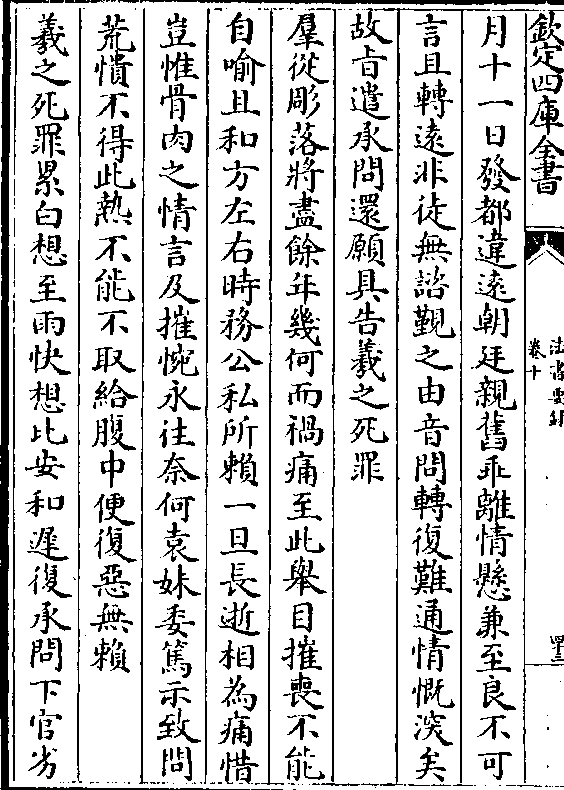 欽定四庫全書
法書要錄
卷十
月十一日發都違遠朝廷親舊乖離情懸兼至良不可
言且轉遠非徒無諮覲之由音問轉復難通情慨深矣
故旨遣承問還願具告羲之死罪
羣從彫落將盡餘年幾何而禍痛至此舉目摧喪不能
自喻且和方左右時務公私所賴一旦長逝相為痛惜
豈惟骨肉之情言及摧惋永往奈何袁妹委篤示致問
荒憒不得此熱不能不取給腹中便復惡無賴
羲之死罪累白想至雨快想比安和遲復承問下官劣